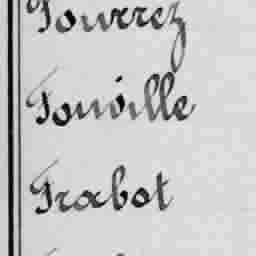 Tourrez
Touville
Trabot